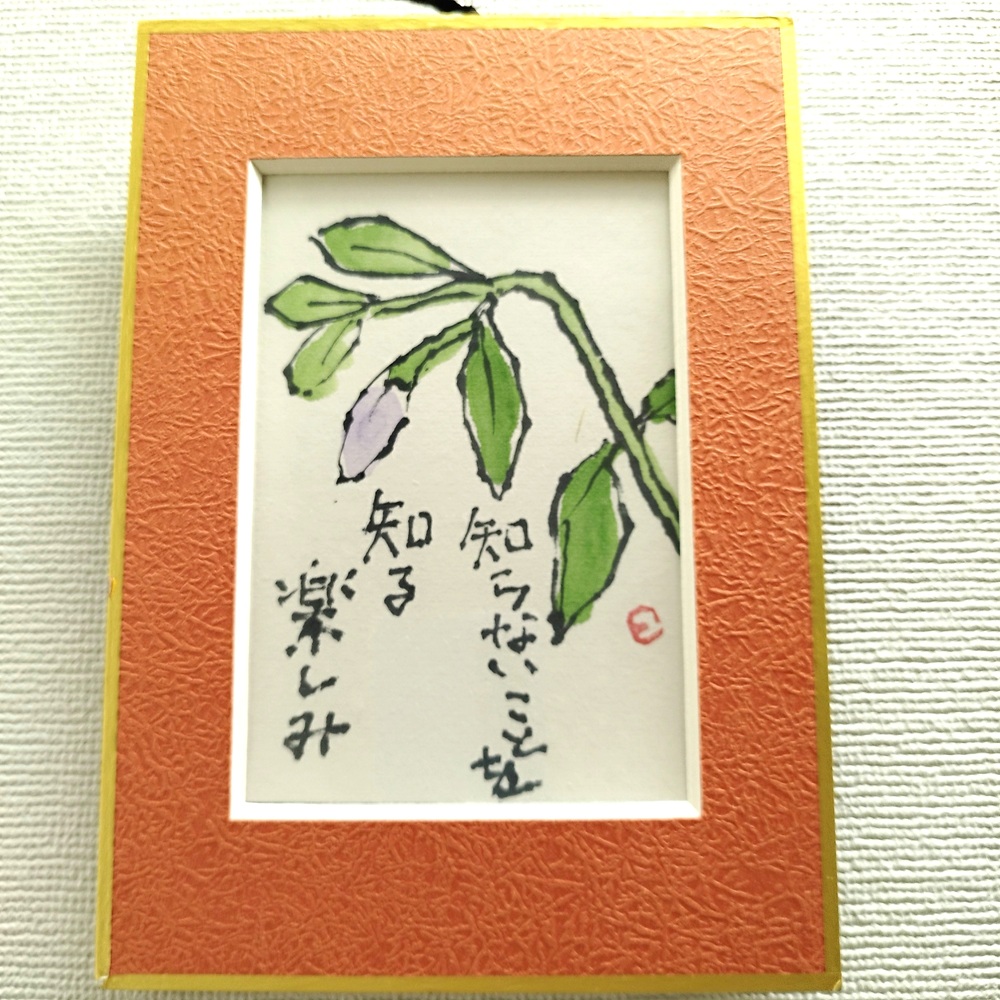 知らないことを
知る
楽しみ